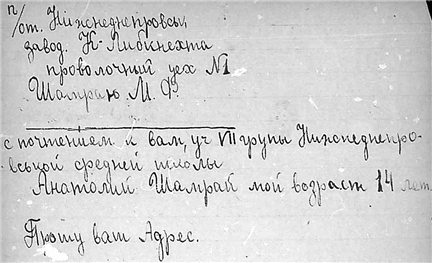 п/от. Нижнеднепровск,
завод. К-Либкнехта
проволочный цех №1
Шамраю М. Ф.
с почтением к вам, уч VII групы Нижнеднепро-
вськой средней школы
Анатолий Шамрай мой возраст 14 лет.
Прошу ваш Адрес.